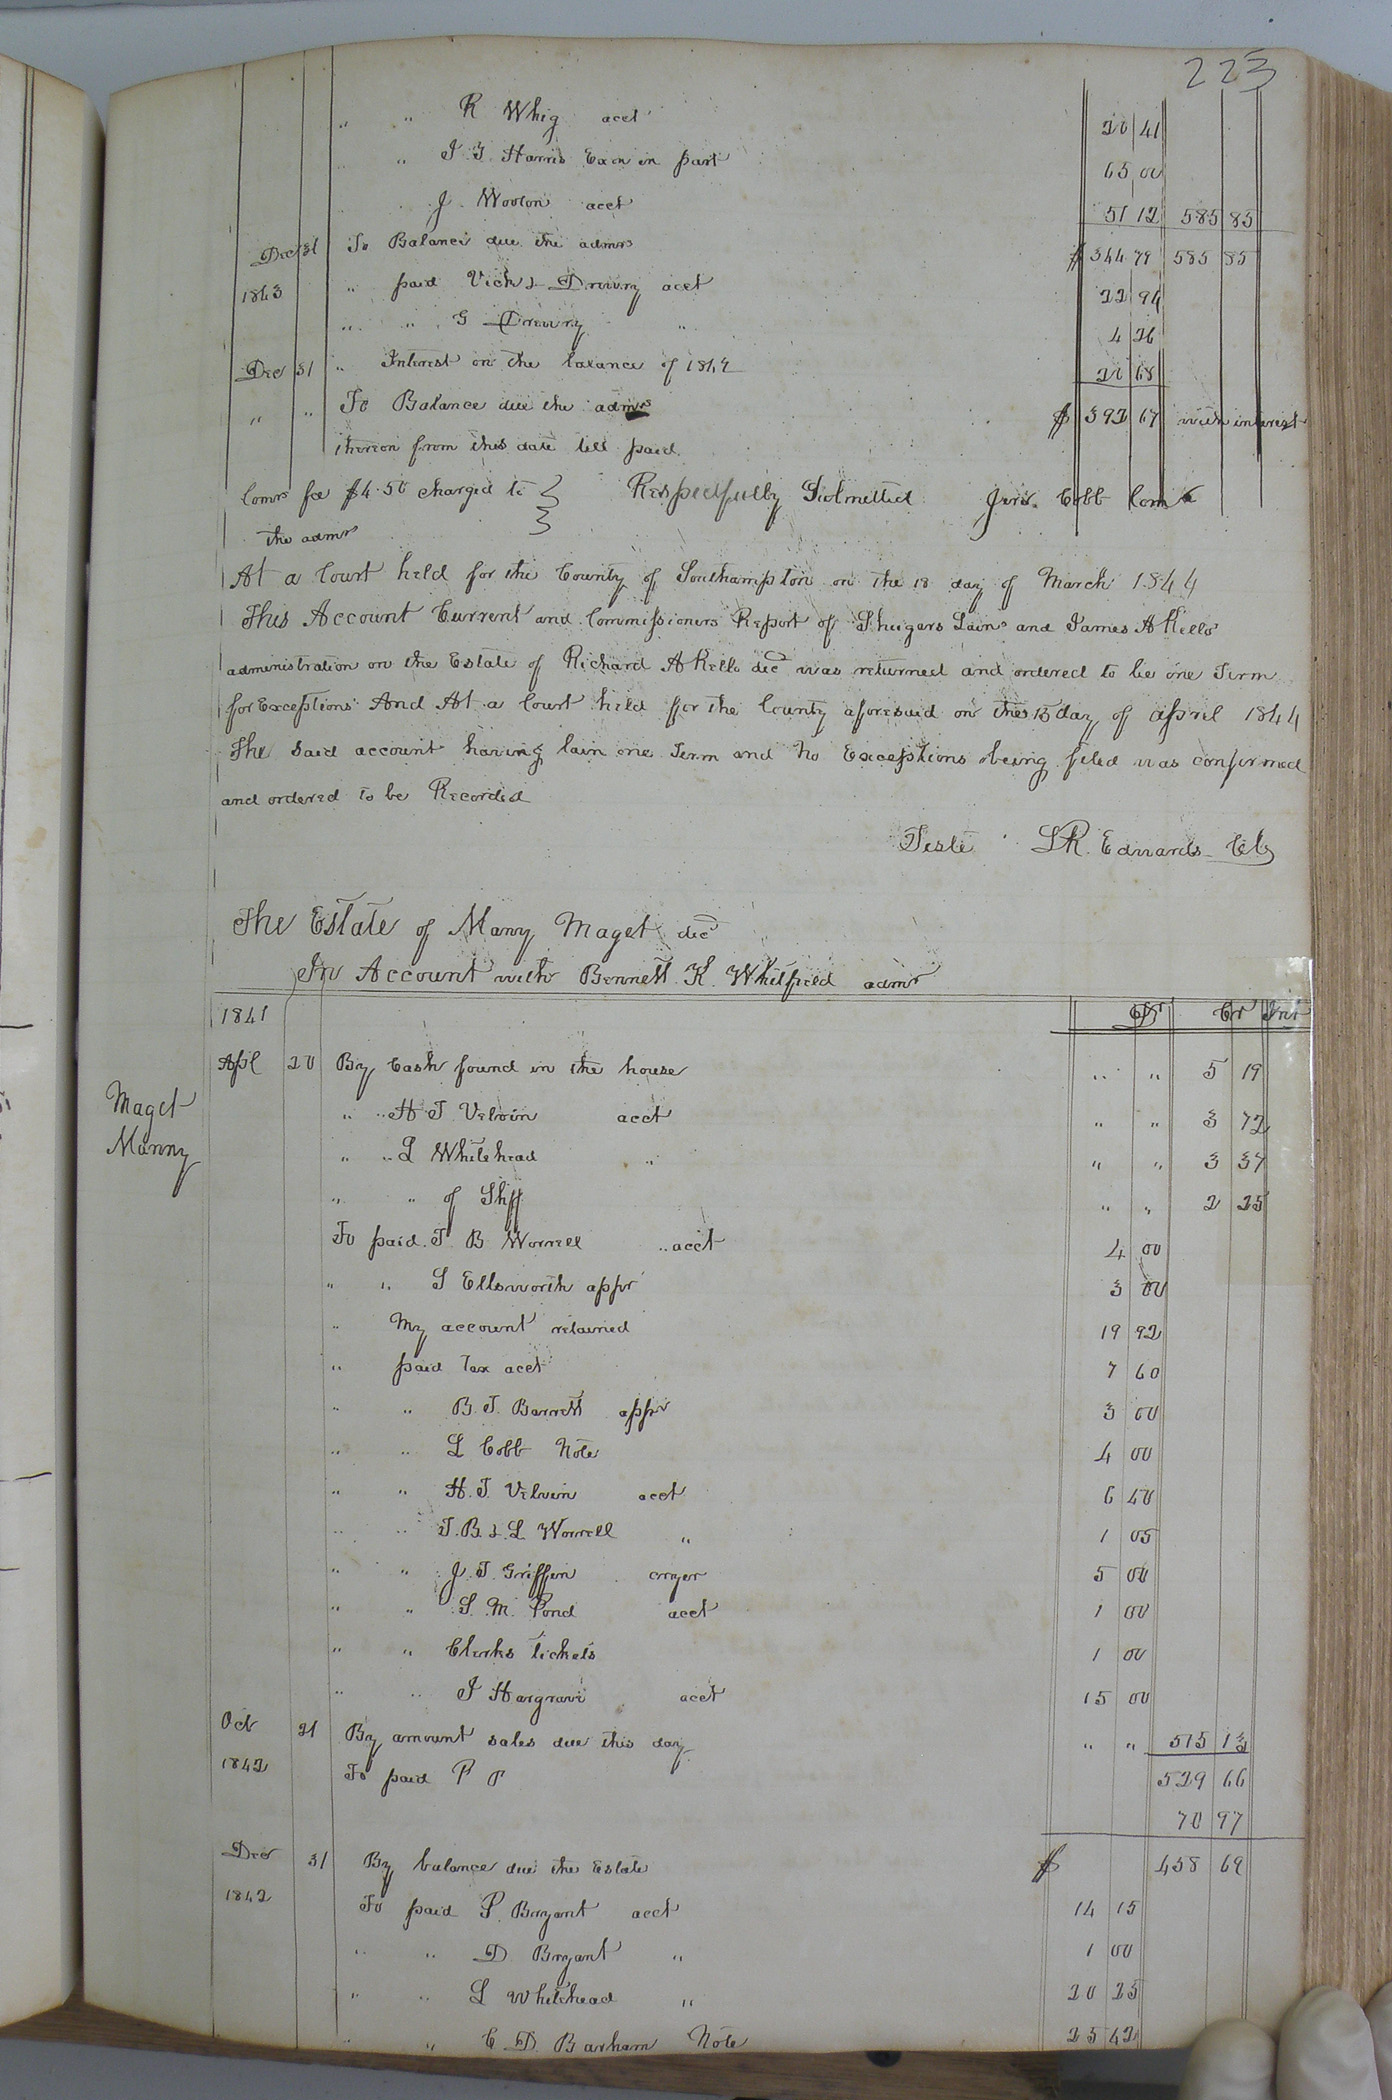 223
" " R Whig acct 20 41
" J. G. Harris Exor in part 65 00
J. Wooton acct 51 12 585 85
Dec 31 To Balance due the admrs $ 344 79 585 85
1843 " paid Vick & Drewry acct 22 94
" " G Drewry " 4 26
Dec 31 " Interest on the balance of 1842 20 68
" " To Balance due the admrs $ 392 67 with interest
thereon from this date till paid.
Comrs fee $4.50 charged to
the admrs
Respectfully Submitted Cobb Comr
At a Court held for the County of Southampton on the 18 day of March 1844
This Account Current and Commissioners Report of Shugars Lain and James A Kello
administration on the Estate of Richard A Kello decd was returned and ordered to lie one Term
for Exceptions And At a Court held for the County aforesaid on the 15 day of April 1844
The said account having lain one Term and no Exceptions being filed was confirmed
and ordered to be Recorded
Teste L R. Edwards Clk
The Estate of Manny Maget decd
In Account with Bennett K. Whitfield admr
1841 Dr Cr Int
Apl 20 By Cash found in the house " " 5 19
Maget
Manny
" " H T Velvin acct " " 3 72
" " L Whitehead " " " 3 37
" " of Shff " " 2 25
To paid T B Worrell " acct 4 00
" " S Ellsworth appr 3 00
" My account retained 19 92
" paid Tax acct 7 60
" " B. T. Barrett appr 3 00
" " L Cobb Note 4 00
" " H. T. Velvin acct 6 40
" " T. B. & L Worrell " 1 05
" " J. T. Griffin cryer 5 00
" " S. M. Pond acct 1 00
" " Clerks tickets 1 00
" " J Hargrave acct 15 00
Oct 21 By amount sales due this day " " 515 13
1842 To paid P P 529 66
70 97
Decr 31 By balance due the Estate $ 458 69
1842 To paid P. Bryant acct 14 15
" " D Bryant " 1 00
" " L Whitehead " 20 25
" " C. D. Barham Note 25 42